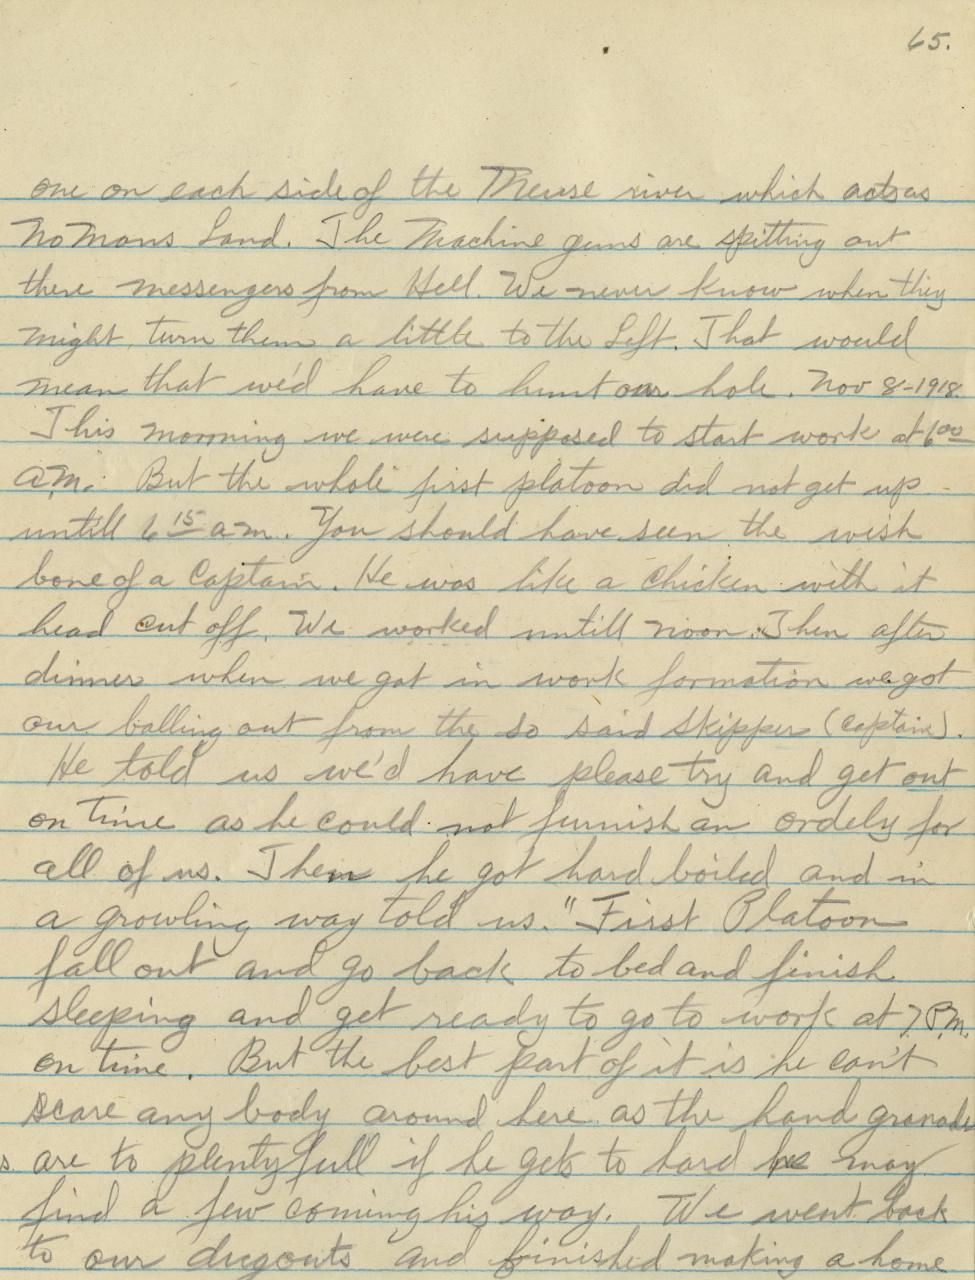 65.
one on each side of the Meuse river which acts as
No Mans Land. The Machine guns are spitting out
there messengers from Hell. We never know when they
might turn them a little to the Left. That would
mean that we'd have to hunt our hole. Nov 8-1918.
This morning we were supposed to start work at 6 00
a.m. But the whole first platoon did not get up
untill 6 15 a.m. You should have seen the wish
bone of a Captain. He was like a chicken with it
head cut off. We worked untill noon. Then after
dinner when we got in work formation we got
our balling out from the so said Skipper (Captain).
He told us we'd have please try and get out
on time as he could not furnish an ordely for
all of us. Then he got hard boiled and in
a growling way told us. "First Platoon
fall out and go back to bed and finish
sleeping and get ready to go to work at 7 P.M.
on time. But the best part of it is he can't
scare any body around here as the hand granade
s are to plentyfull if he gets to hard he may
find a few coming his way. We went back
to our dugouts and finished making a home